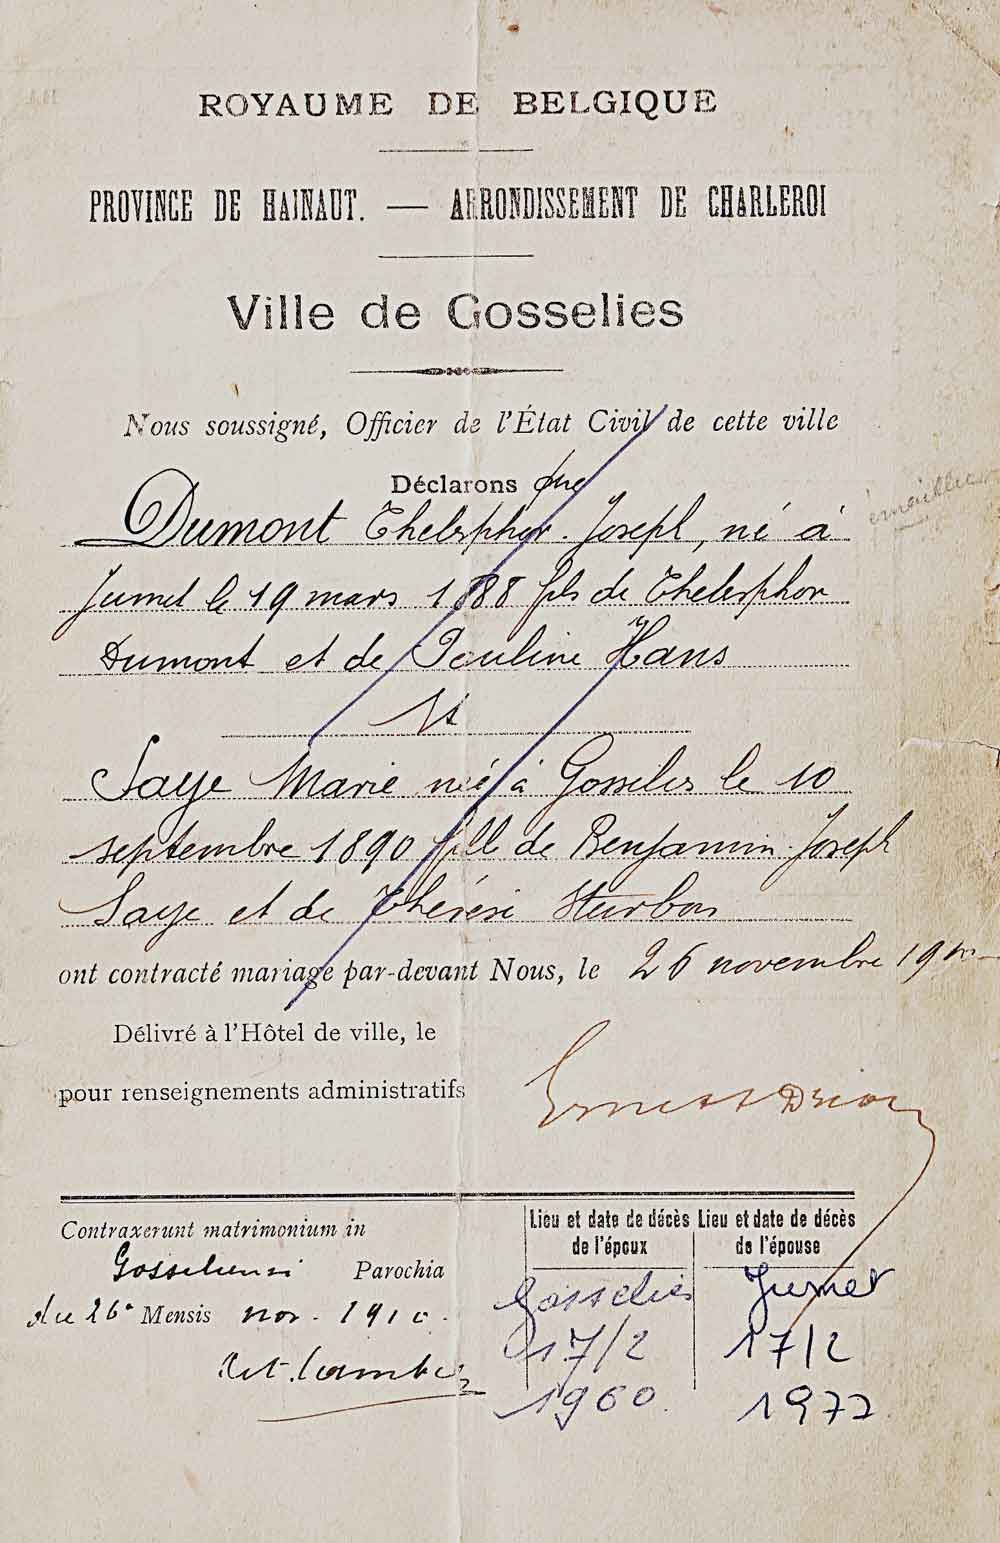 ROYAUME DE BELGIQUE
PROVINCE DE HAINAUT. — ARRONDISSEMENT DE CHARLEROI
Ville de Gosselies
Nous soussigné, Officier de l'État Civil de cette ville
Déclarons que
Dumont Thelesphor Joseph, né à
Jumet le 19 mars 1888 fils de Thelesphor
Dumont et de Pauline Hans
Et
Saye Marie née à Gosselies le 10
septembre 1890 fille de Benjamin Joseph
Saye et de Thérèse
ont contracté mariage par-devant Nous, le 26 novembre
Délivré à l'Hôtel de ville, le
pour renseignements administratifs
Contraxerunt matrimonium in
Parochia
die 26a Mensis nov. 1910.
Lieu et date de décès de l'époux
Gosselies
17/2
1960.
Lieu et date de décès de l'épouse
Jumet
17/2
1977